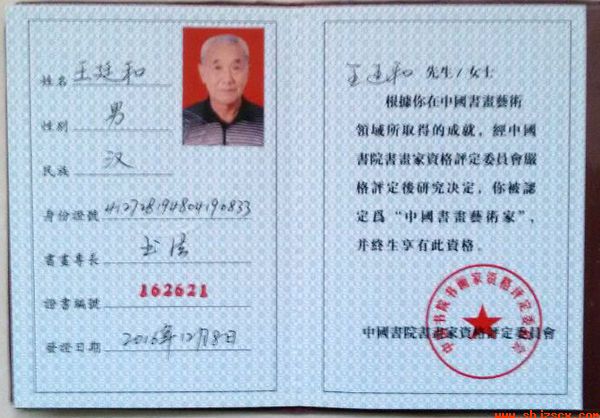 姓名 王廷和
性别 男
民族 汉
身份證號 412728194804190833
書畫專長 书法
證書編號 162621
發證日期 2016年12月8日
王廷和 先生/女士
根據你在中國書畫藝術
領域所取得的成就，經中國
書院書畫家資格評定委員會嚴
格評定後研究决定，你被認
定爲“中國書畫藝術家”，
并終生享有此資格。
中國書院書畫家資格評定委員會
中国书院书画家资格评定委员会
www.sbjzscx.com